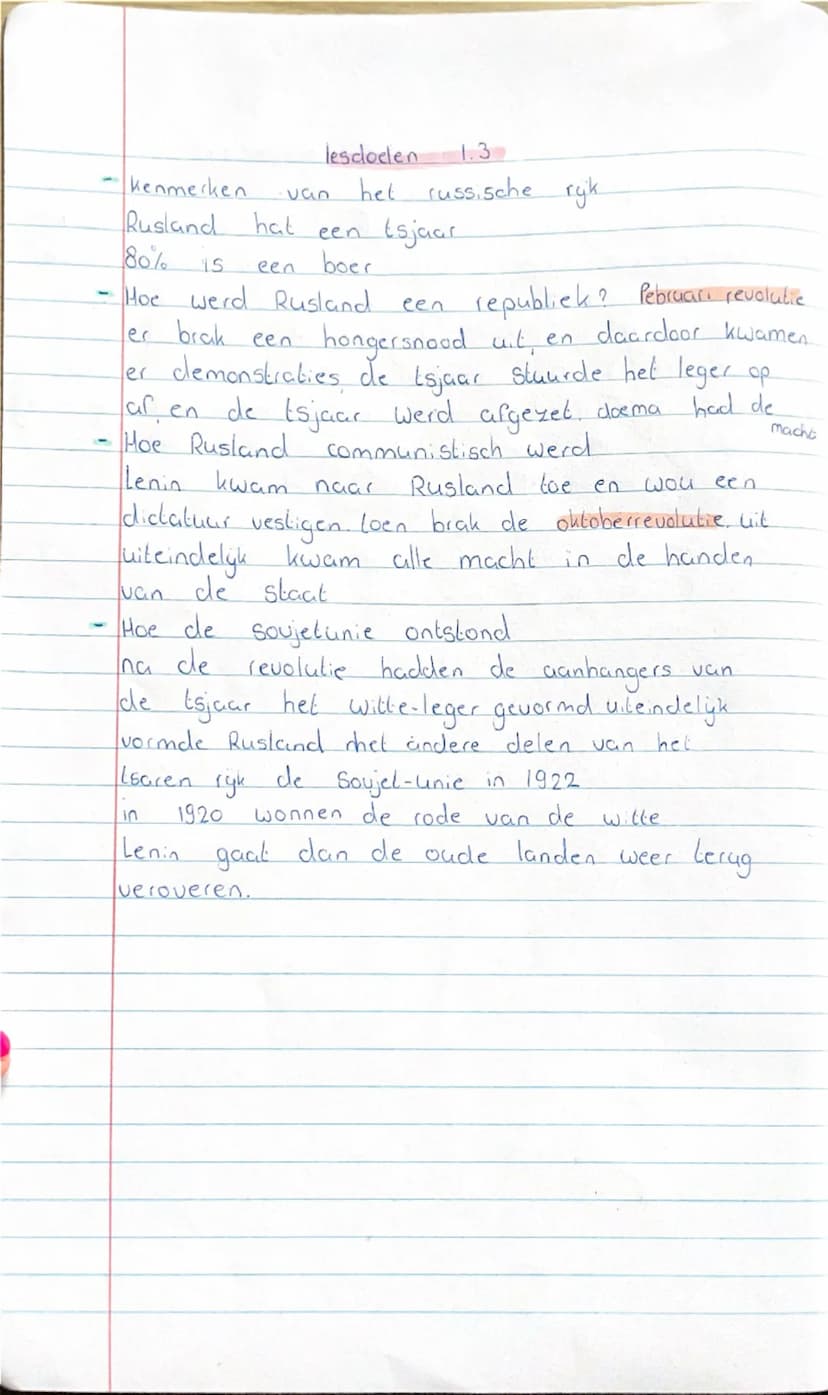 lesdoelen 1.3
- kenmerken van het russische rijk
Rusland hat een tsjaar
80% is een boer
- Hoe werd Rusland een republiek? Februari revolutie
er brak een hongersnood uit, en daardoor kwamen
er demonstraties, de tsjaar stuurde het leger op
af, en de tsjaar werd afgezet. doema had de
macht
- Hoe Rusland communistisch werd
Lenin kwam naar Rusland toe en wou een
dictatuur vestigen. toen brak de oktoberrevolutie uit
uiteindelijk kwam alle macht in de handen
van de staat
- Hoe de sovjetunie ontstond
na de revolutie hadden de aanhangers van
de tsjaar het witte-leger gevormd uiteindelijk
vormde Rusland met andere delen van het
tsaren rijk de Sovjet-unie in 1922
in 1920 wonnen de rode van de witte
Lenin gaat dan de oude landen weer terug
veroveren.